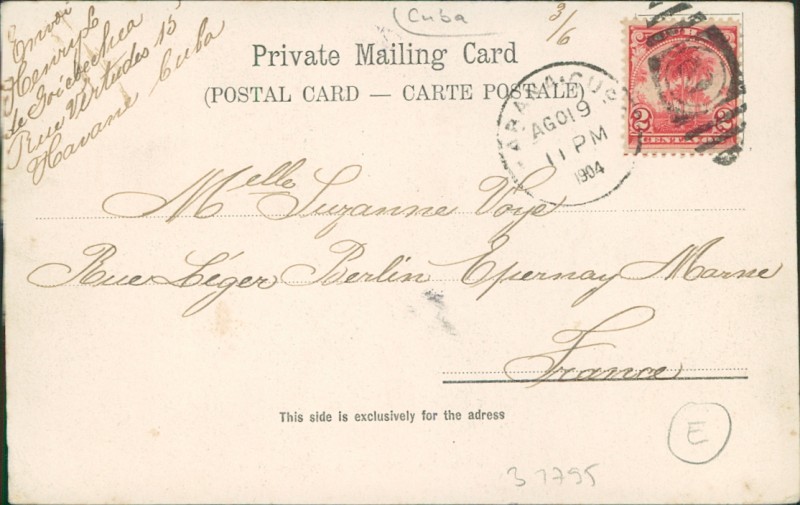 Cuba
3/6
Envoi
Henry L
de Goicoechea
Rue Virtudes 15
Havane Cuba
Private Mailing Card
(POSTAL CARD — CARTE POSTALE)
AGO 19
11 PM
1904
2 2
Melle Suzanne Voye
Rue Léger Bertin Epernay Marne
France
This side is exclusively for the adress
E
3 7795